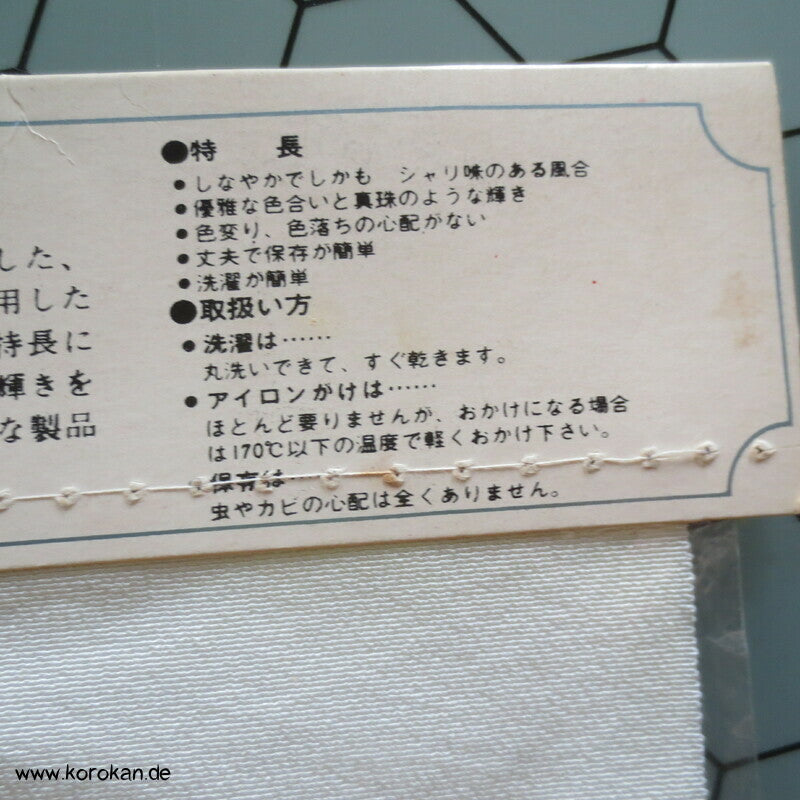 した、
用した
特長に
輝きを
な製品
●特　長
●しなやかでしかも　シャリ味のある風合
●優雅な色合いと真珠のような輝き
●色変り、色落ちの心配がない
●丈夫で保存が簡単
●洗濯が簡単
●取扱い方
●洗濯は……
丸洗いできて、すぐ乾きます。
●アイロンがけは……
ほとんど要りませんが、おかけになる場合
は170℃以下の温度で軽くおかけ下さい。
保存は…
虫やカビの心配は全くありません。
www.korokan.de